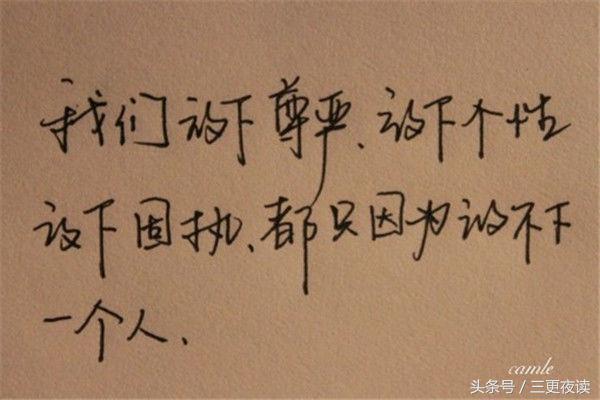 我们放下尊严、放下个性
放下固执、都只因为放不下
一个人、
camle
头条号／三更夜读